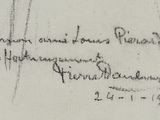 mon ami Louis Pierard
affectueusement
Pierre
24-1-19